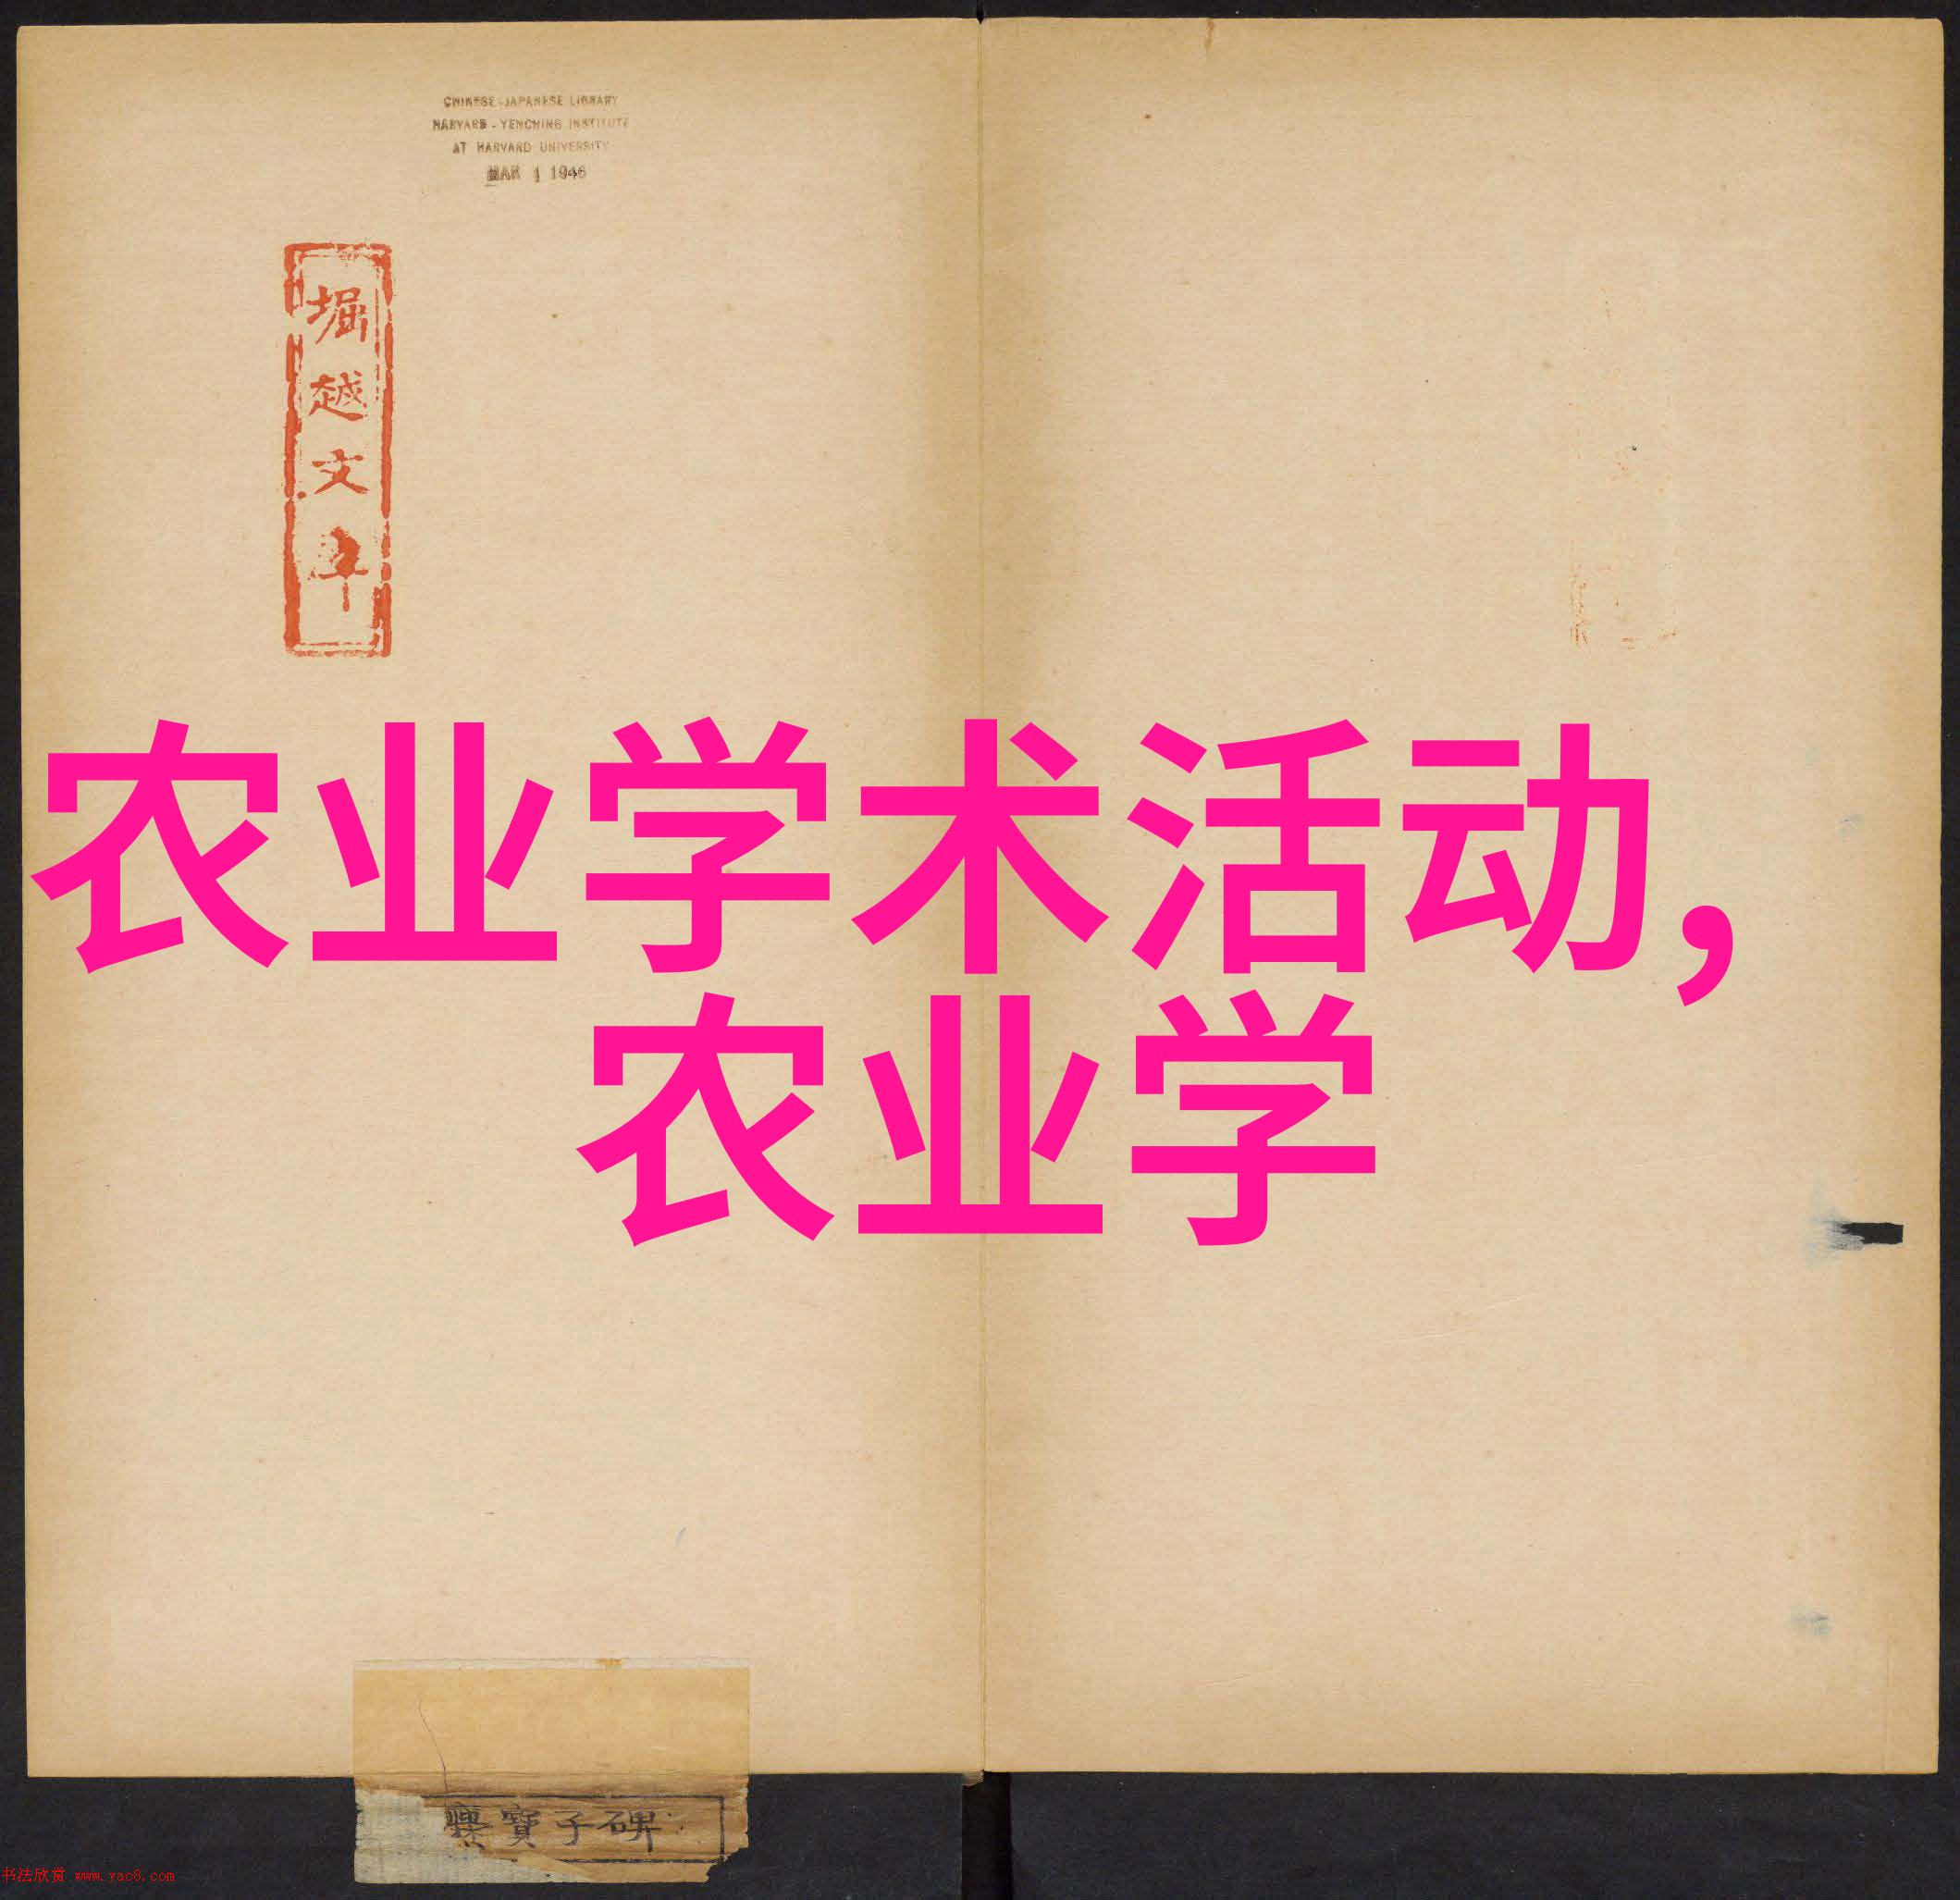 CHINESE-JAPANESE LIBRARY
HARVARD-YENCHING INSTITUTE
AT HARVARD UNIVERSITY
MAR 1 1946
堀越文
农业学术活动,
农业学
爨寶子碑
书法欣赏 www.yac8.com